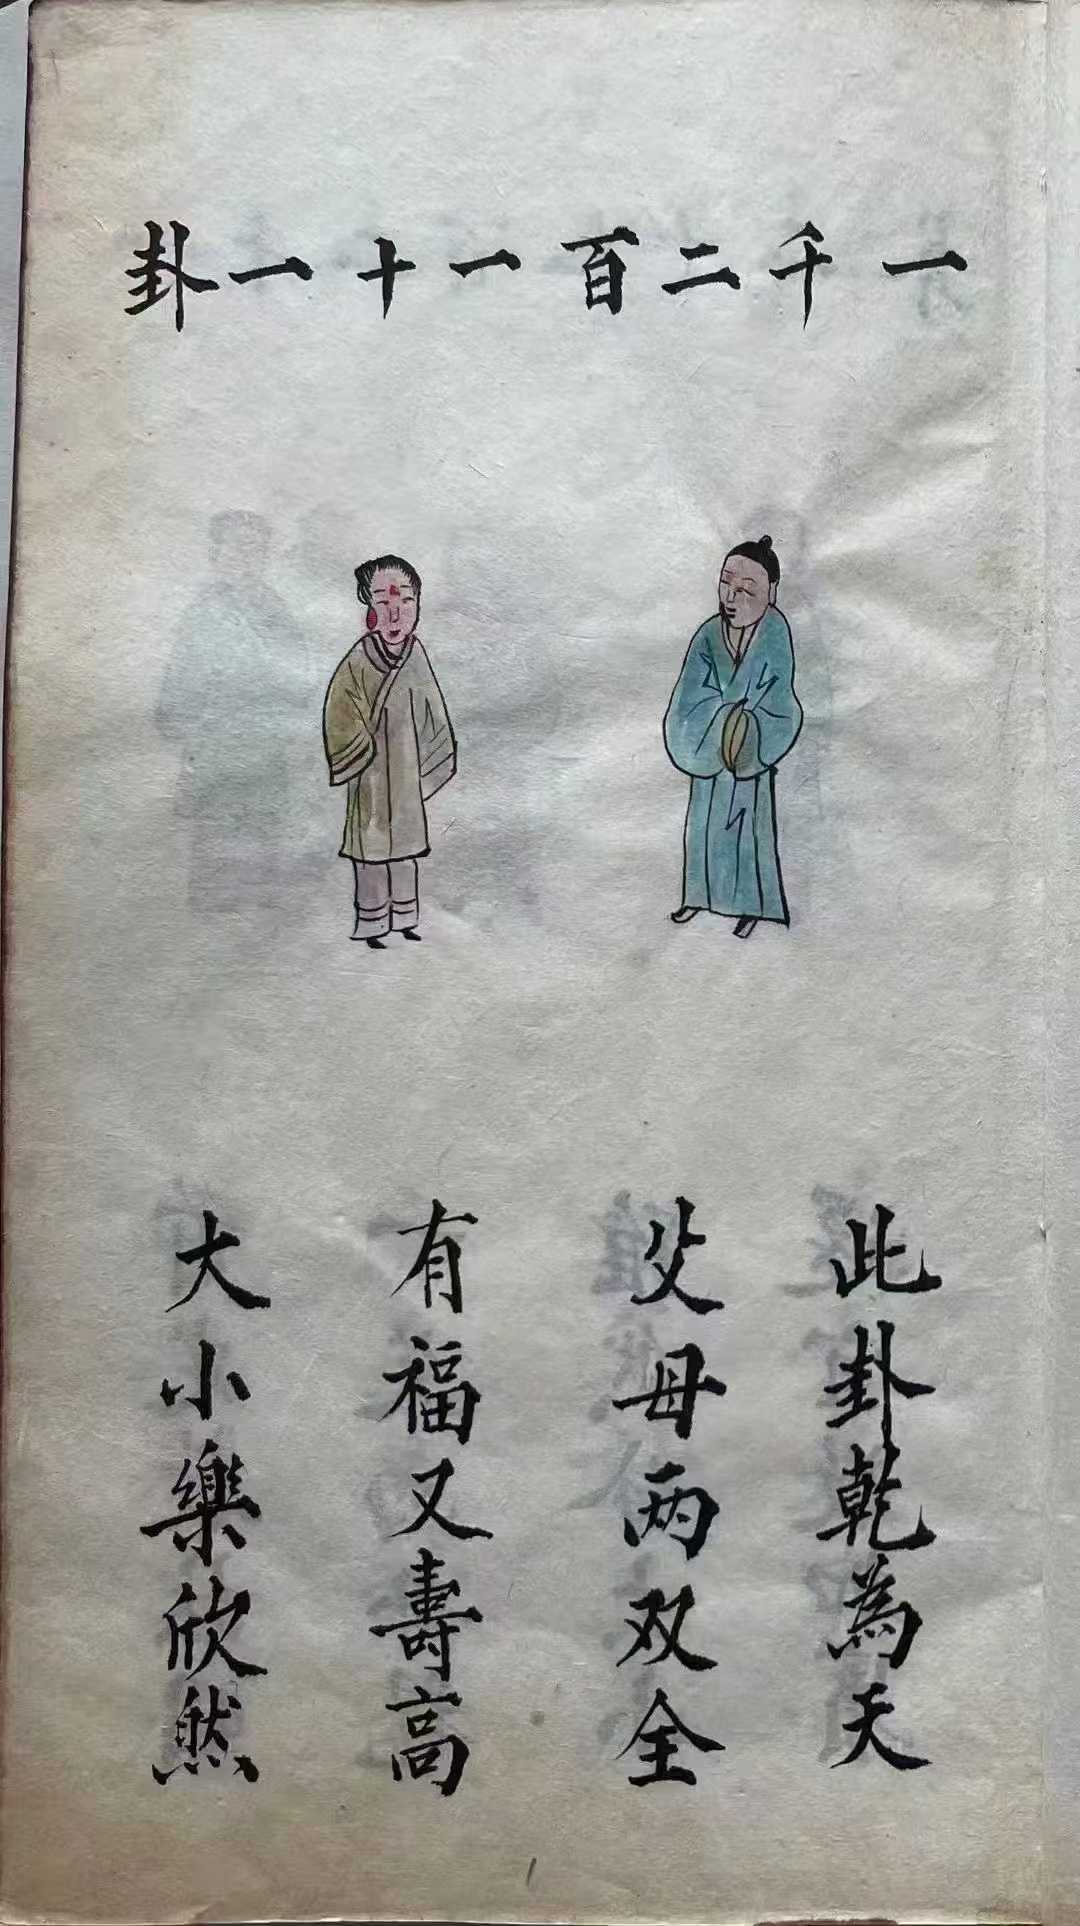 一千二百一十一卦
此卦乾為天
父母两双全
有福又壽高
大小樂欣然
1